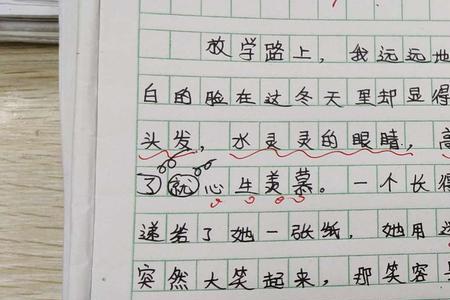 放学路上，我远远地
白的脸在这冬天里却显得
头发，水灵灵的眼睛，高
了就心生羡慕。一个长得
递给了她一张纸，她用
突然大笑起来，那笑容